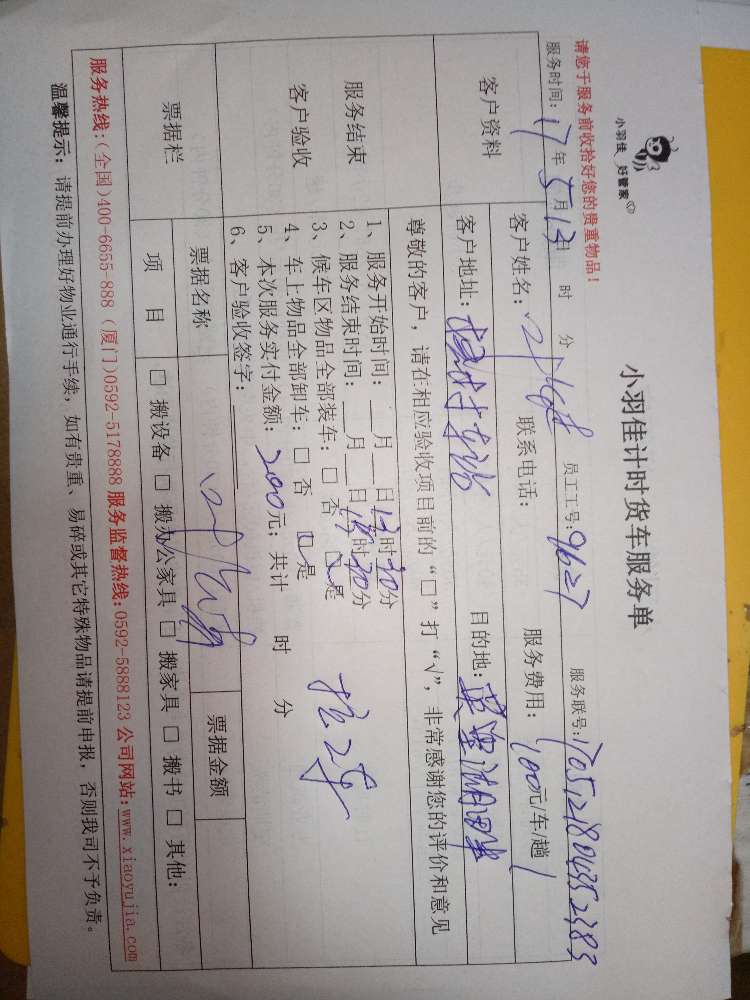 小羽佳 好管家
小羽佳计时货车服务单
请您于服务前收拾好您的贵重物品！
服务时间： 17 年 5 月 13 日 时 分 员工工号： 9627 服务联号： 170512180435 2383
客户资料
客户姓名： 联系电话： 服务费用： 100 元/车/趟
客户地址： 目的地：
尊敬的客户，请在相应验收项目前的“□”打“√”，非常感谢您的评价和意见
服务结束
客户验收
1、服务开始时间：___月___日 时 30 分
2、服务结束时间：___月___日 时 30 分
3、候车区物品全部装车：□ 否 □ 是
4、车上物品全部卸车：□ 否 □ 是
5、本次服务实付金额： 200 元；共计 时 分
6、客户验收签字：
票据栏
票据名称 票据金额
项 目 □ 搬设备 □ 搬办公家具 □ 搬家具 □ 搬书 □ 其他:
服务热线：(全国)400-6655-888 (厦门)0592-5178888 服务监督热线:0592-5888123 公司网站:www.xiaoyujia.com
温馨提示：请提前办理好物业通行手续，如有贵重、易碎或其它特殊物品请提前申报，否则我司不予负责。